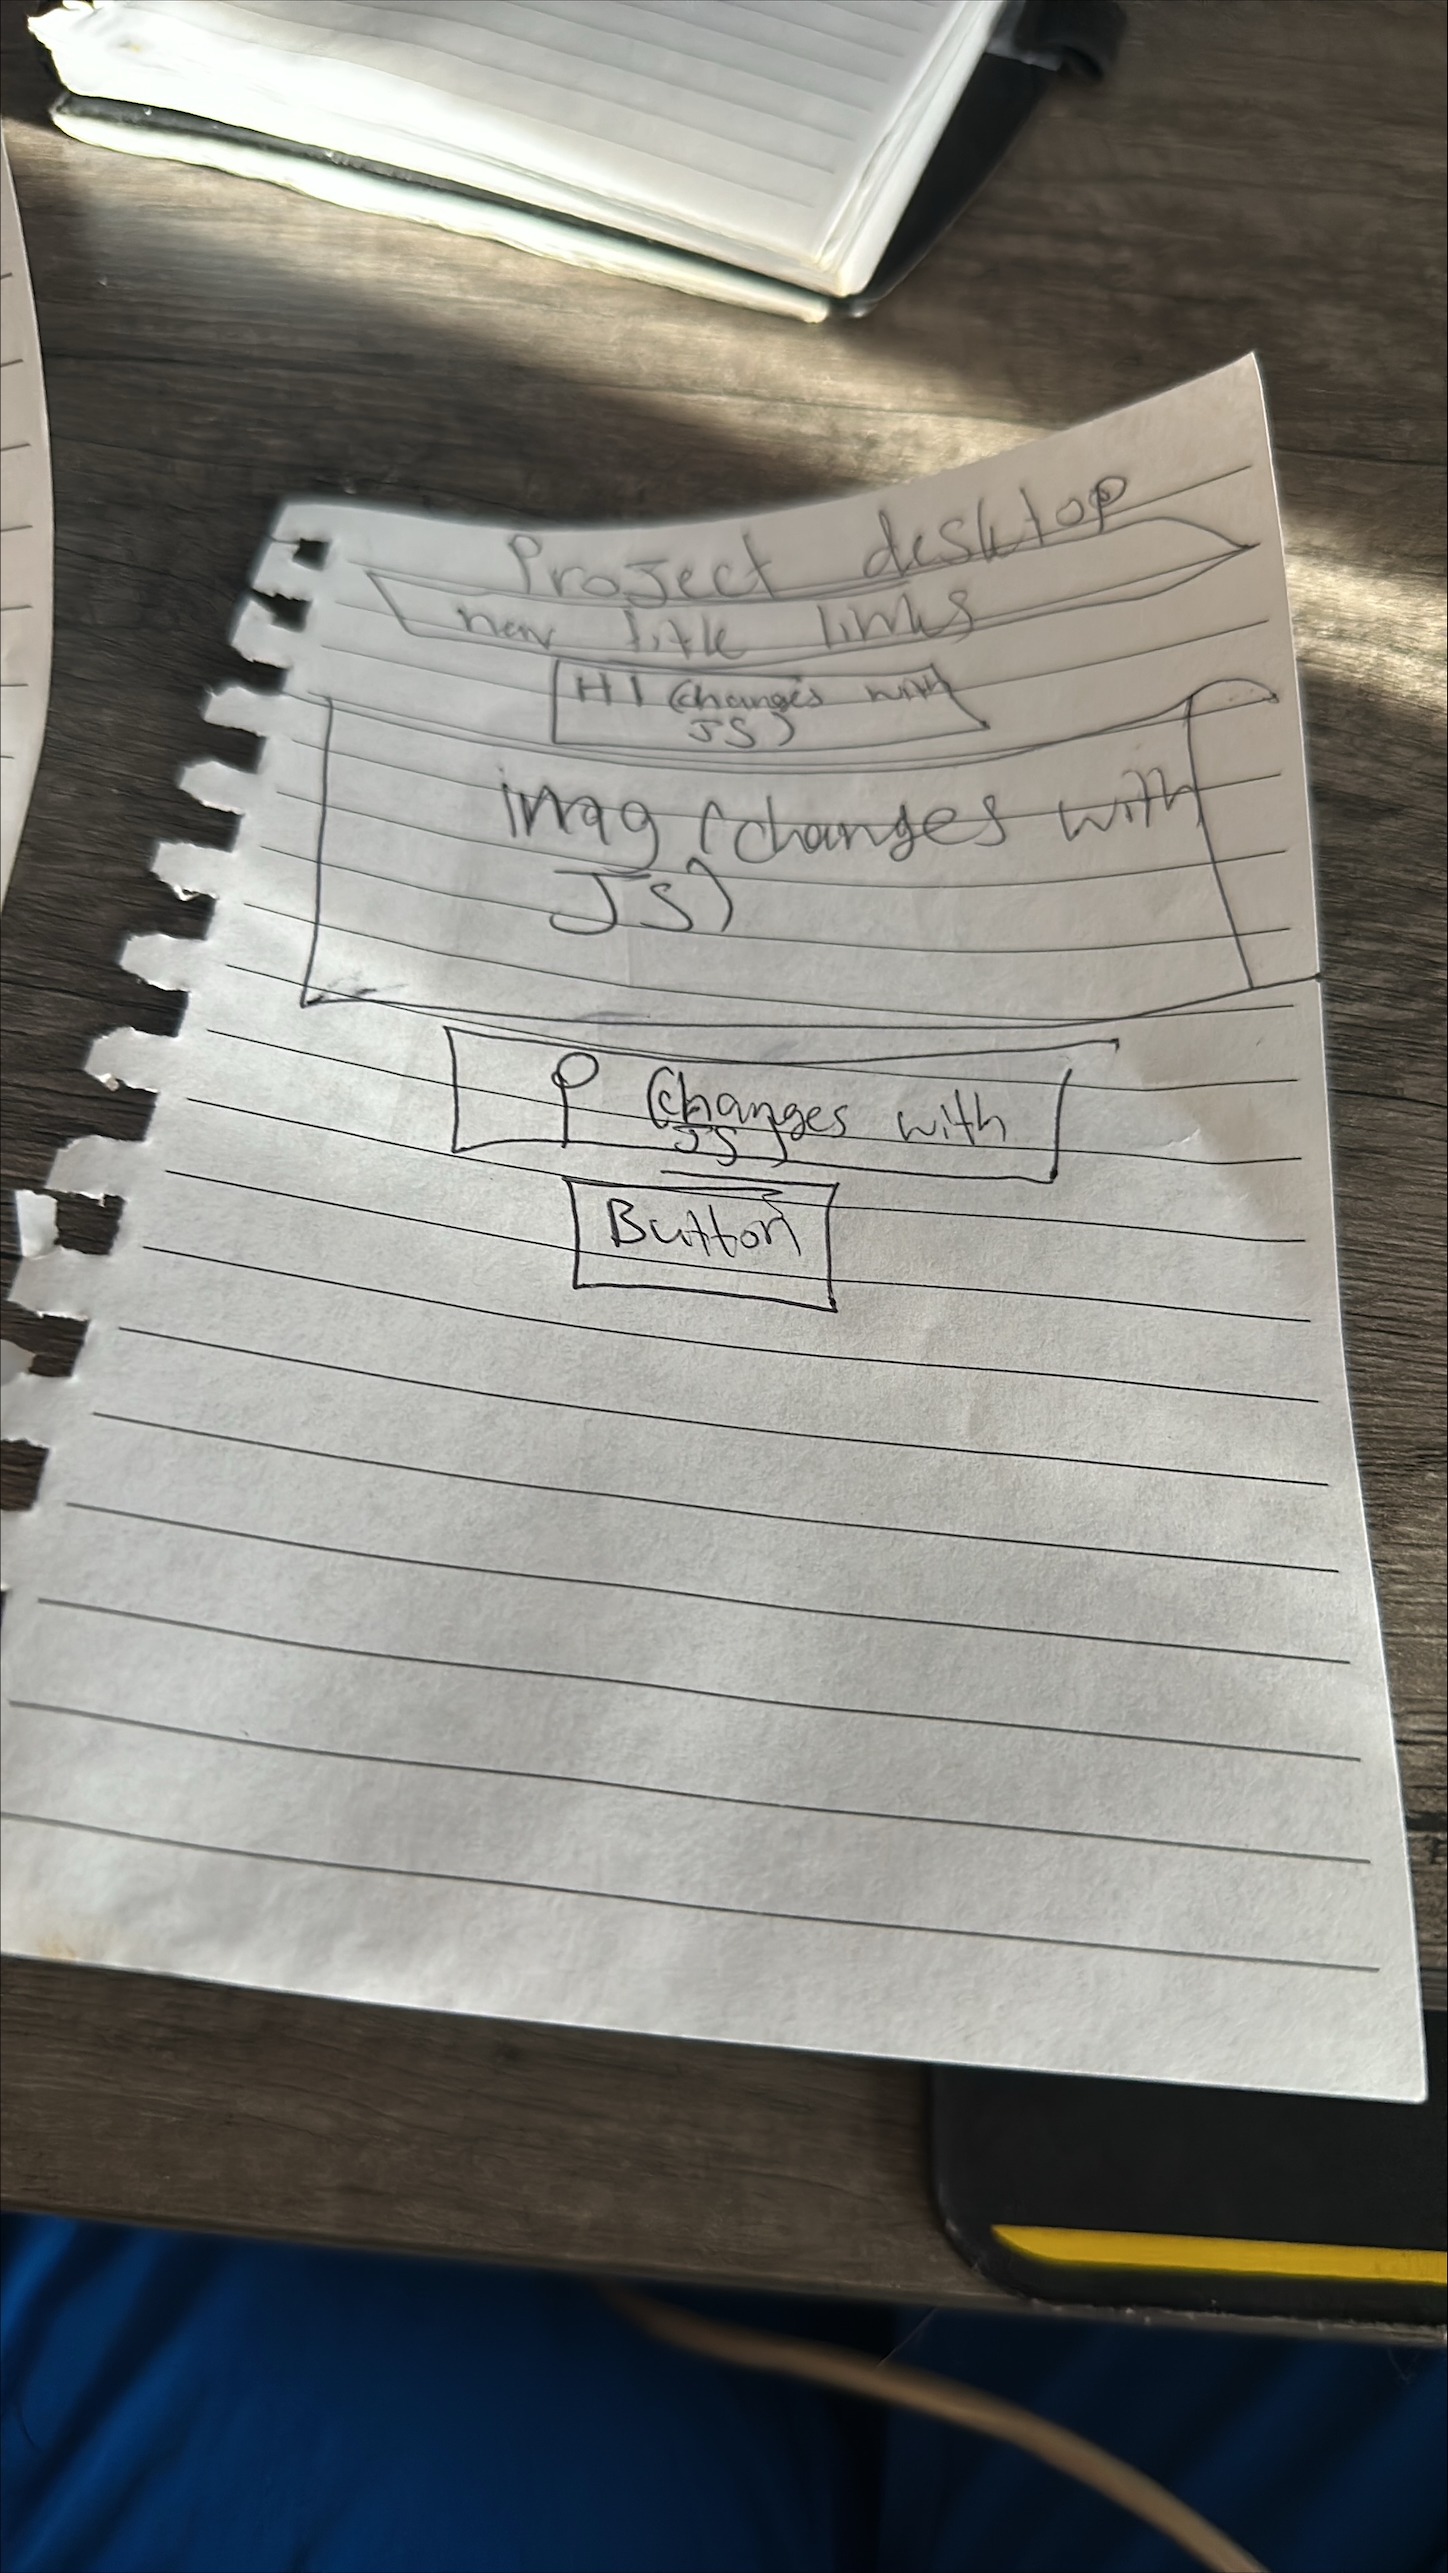 Project desktop
nav title links
H1 (changes with
JS)
imag (changes with
JS)
P (changes with
JS)
Button